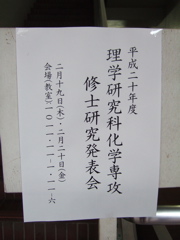 平成二十年度
理学研究科化学専攻
修士研究発表会
二月十九日(木)・二月二十日(金)
会場(教室)